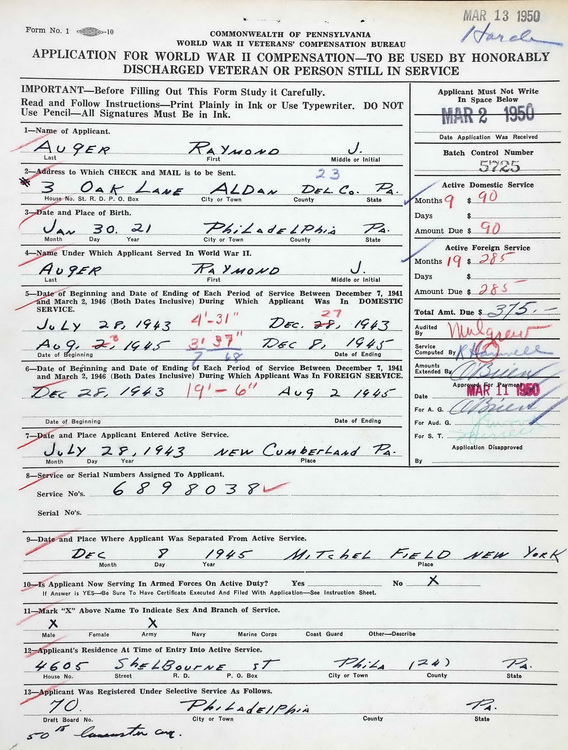 MAR 13 1950
Form No. 1 -10
COMMONWEALTH OF PENNSYLVANIA
WORLD WAR II VETERANS' COMPENSATION BUREAU
APPLICATION FOR WORLD WAR II COMPENSATION—TO BE USED BY HONORABLY
DISCHARGED VETERAN OR PERSON STILL IN SERVICE
IMPORTANT—Before Filling Out This Form Study it Carefully.
Read and Follow Instructions—Print Plainly in Ink or Use Typewriter. DO NOT
Use Pencil—All Signatures Must Be in Ink.
Applicant Must Not Write
In Space Below
MAR 2 1950
Date Application Was Received
Batch Control Number
5725
1—Name of Applicant.
AUGER RAYMOND J.
Last First Middle or Initial
2—Address to Which CHECK and MAIL is to be Sent.
23
3 OAK LANE ALDAN DEL. CO. PA.
House No. St. R. D. P. O. Box City or Town County State
3—Date and Place of Birth.
JAN 30. 21 PHILADELPHIA PA.
Month Day Year City or Town County State
4—Name Under Which Applicant Served In World War II.
AUGER RAYMOND J.
Last First Middle or Initial
5—Date of Beginning and Date of Ending of Each Period of Service Between December 7, 1941
and March 2, 1946 (Both Dates Inclusive) During Which Applicant Was In DOMESTIC
SERVICE.
27
JULY 28, 1943 4'-31" DEC. 28, 1943
3
AUG. 2, 1945 DEC 8, 1945
Date of Beginning Date of Ending
6—Date of Beginning and Date of Ending of Each Period of Service Between December 7, 1941
and March 2, 1946 (Both Dates Inclusive) During Which Applicant Was In FOREIGN SERVICE.
DEC 28, 1943 19'-6" AUG 2 1945
Date of Beginning Date of Ending
7—Date and Place Applicant Entered Active Service.
JULY 28, 1943 NEW CUMBERLAND PA.
Month Day Year Place
8—Service or Serial Numbers Assigned To Applicant.
Service No's. 6898038
Serial No's.
Active Domestic Service
Months 9 $ 90
Days $
Amount Due $ 90
Active Foreign Service
Months 19 $ 285
Days $
Amount Due $ 285
Total Amt. Due $ 375.-
Audited
By
Service
Computed By
Amounts
Extended By
Approved For Payment
Date MAR 11 1950
For A. G.
For Aud. G.
For S. T.
Application Disapproved
By
9—Date and Place Where Applicant Was Separated From Active Service.
DEC 8 1945 MITCHEL FIELD NEW YORK
Month Day Year Place
10—Is Applicant Now Serving In Armed Forces On Active Duty? Yes No X
If Answer is YES—Be Sure To Have Certificate Executed And Filed With Application—See Instruction Sheet.
11—Mark "X" Above Name To Indicate Sex And Branch of Service.
X X
Male Female Army Navy Marine Corps Coast Guard Other—Describe
12—Applicant's Residence At Time of Entry Into Active Service.
4605 SHELBOURNE ST PHILA (24) PA.
House No. Street R. D. P. O. Box City or Town County State
13—Applicant Was Registered Under Selective Service As Follows.
70. PHILADELPHIA PA.
Draft Board No. City or Town County State